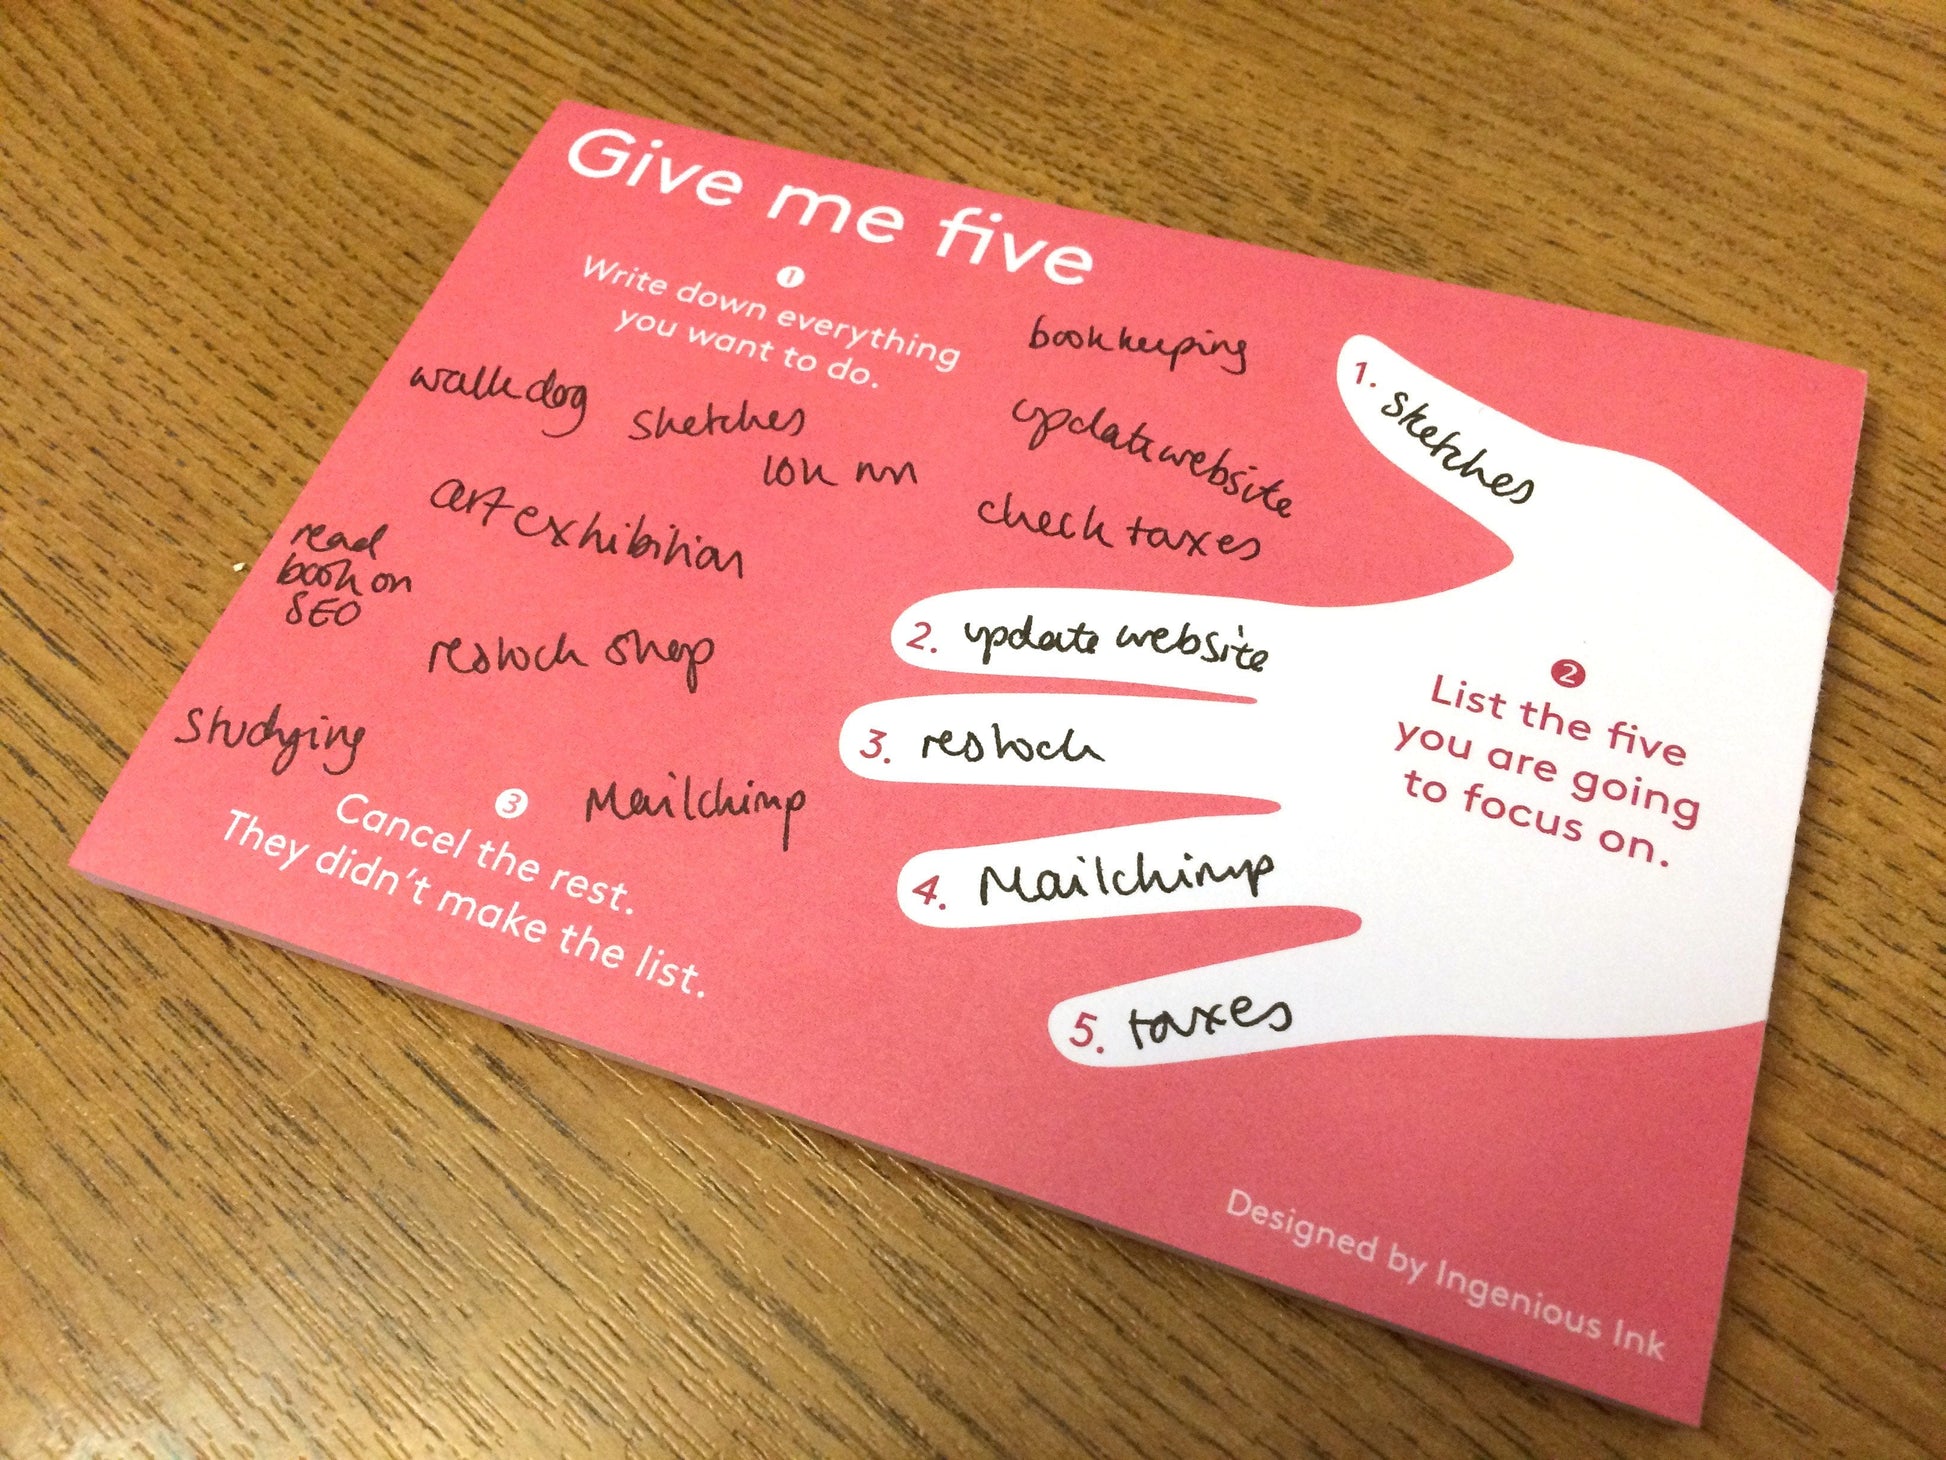 Give me five
1
Write down everything
you want to do.
bookkeeping
walk dog
sketches
update website
10k run
check taxes
art exhibition
read
book on
SEO
restock shop
studying
Mailchimp
3
Cancel the rest.
They didn't make the list.
1. sketches
2. update website
3. restock
4. Mailchimp
5. taxes
2
List the five
you are going
to focus on.
Designed by Ingenious Ink